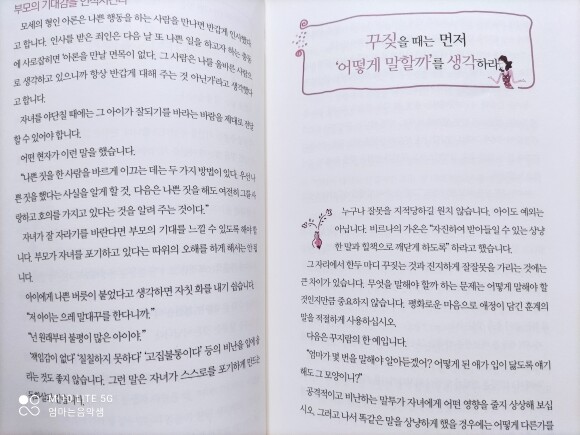 부모의 기대감을
모세의 형인 아론은 나쁜 행동을 하는 사람을 만나면 반갑게 인사했다
고 합니다. 인사를 받은 죄인은 다음 날 또 나쁜 일을 하고자 하는 충동
에 사로잡히면 '아론을 만날 면목이 없다. 그 사람은 나를 올바른 사람으
로 생각하고 있으니까 항상 반갑게 대해 주는 것 아닌가'라고 생각했다
고 합니다.
자녀를 야단칠 때에는 그 아이가 잘되기를 바라는 바람을 제대로 전달
할 수 있어야 합니다.
어떤 현자가 이런 말을 했습니다.
"나쁜 짓을 한 사람을 바르게 이끄는 데는 두 가지 방법이 있다. 우선 나
쁜 짓을 했다는 사실을 알게 할 것, 다음은 나쁜 짓을 해도 여전히 그를 사
랑하고 호의를 가지고 있다는 것을 알려 주는 것이다."
자녀가 잘 자라기를 바란다면 부모의 기대를 느낄 수 있도록 해야 합
니다. 부모가 자녀를 포기하고 있다는 따위의 오해를 하게 해서는 안 됩
니다.
아이에게 나쁜 버릇이 붙었다고 생각하면 자칫 화를 내기 쉽습니다.
"저 아이는 으레 말대꾸를 한다니까."
"넌 원래부터 불평이 많은 아이야."
'책임감이 없다' '칠칠하지 못하다' '고집불통이다' 등의 비난을 입에 올
리는 것도 좋지 않습니다. 그런 말은 자녀가 스스로를 포기하게 만드는
MI 10 LITE 5G
엄마는음악쌤
꾸짖을 때는 먼저
'어떻게 말할까'를 생각하라
누구나 잘못을 지적당하길 원치 않습니다. 아이도 예외는
아닙니다. 비르나의 가온은 "자진하여 받아들일 수 있는 상냥
한 말과 힐책으로 깨닫게 하도록" 하라고 했습니다.
그 자리에서 한두 마디 꾸짖는 것과 진지하게 잘잘못을 가리는 것에는
큰 차이가 있습니다. 무엇을 말해야 할까 하는 문제는 어떻게 말해야 할
것인지만큼 중요하지 않습니다. 평화로운 마음으로 애정이 담긴 훈계의
말을 적절하게 사용하십시오.
다음은 꾸지람의 한 예입니다.
"엄마가 몇 번을 말해야 알아듣겠어? 어떻게 된 애가 입이 닳도록 얘기
해도 그 모양이니?"
공격적이고 비난하는 말투가 자녀에게 어떤 영향을 줄지 상상해 보십
시오. 그러고 나서 똑같은 말을 상냥하게 했을 경우에는 어떻게 다른가를